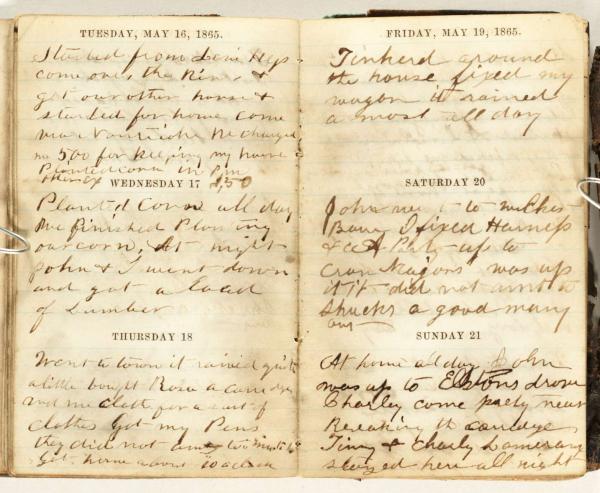 TUESDAY, MAY 16, 1865.
Started from
come over the River &
got our other horse &
started for home come
near he charged
me 500 for keeping my horse
Planted corn in P.m
WEDNESDAY 17
Plant'd Corn all day
We finished Plowing
our corn, At night
John & I went down
and got a load
of Lumber
THURSDAY 18
Went to town it rained quite
a little bought Rosa a
and me cloth for a suit of
clothes got my Pens
they did not
got home about 10 oclock
FRIDAY, MAY 19, 1865.
Tinkerd around
the house fixed my
wagon it rained
a most all day
SATURDAY 20
John went to
I fixed Harness
& c A Party up to
was up
it did not amt to
Shucks a good many
out
SUNDAY 21
At home all day John
was up to drove
Charley come prety near
Breaking the carriage
Tiny & Charly
stayed here all night